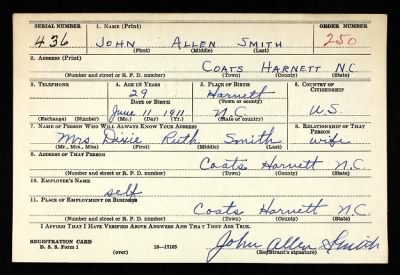 SERIAL NUMBER 1. NAME (Print) ORDER NUMBER
436 JOHN ALLEN SMITH 250
(First) (Middle) (Last)
2. ADDRESS (Print)
COATS HARNETT N.C.
(Number and street or R. F. D. number) (Town) (County) (State)
3. TELEPHONE 4. AGE IN YEARS 5. PLACE OF BIRTH 6. COUNTRY OF CITIZENSHIP
29 Harnett
DATE OF BIRTH (Town or county)
June 11 1911 N.C. U.S.
(Exchange) (Number) (Mo.) (Day) (Yr.) (State or country)
7. NAME OF PERSON WHO WILL ALWAYS KNOW YOUR ADDRESS 8. RELATIONSHIP OF THAT PERSON
Mrs. Dixie Ruth Smith wife
(Mr., Mrs., Miss) (First) (Middle) (Last)
9. ADDRESS OF THAT PERSON
Coats Harnett N.C.
(Number and street or R. F. D. number) (Town) (County) (State)
10. EMPLOYER'S NAME
self
11. PLACE OF EMPLOYMENT OR BUSINESS
Coats Harnett N.C.
(Number and street or R. F. D. number) (Town) (County) (State)
I AFFIRM THAT I HAVE VERIFIED ABOVE ANSWERS AND THAT THEY ARE TRUE.
REGISTRATION CARD
D. S. S. Form 1 (over) 16—17105 John Allen Smith
(Registrant's signature)